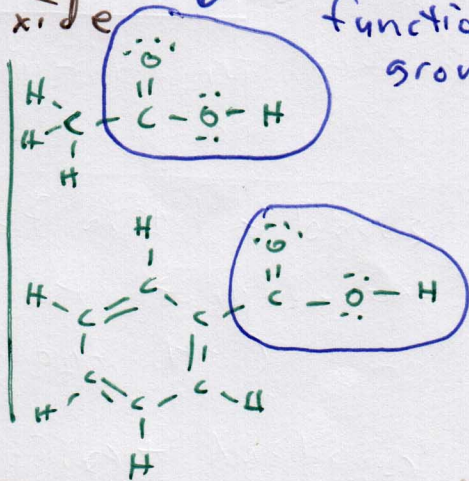 xide
functio
grou
:O:
H
||
H - C - C - O - H
H
:O:
H
||
H C C C - O - H
C C
C C
H C H
H